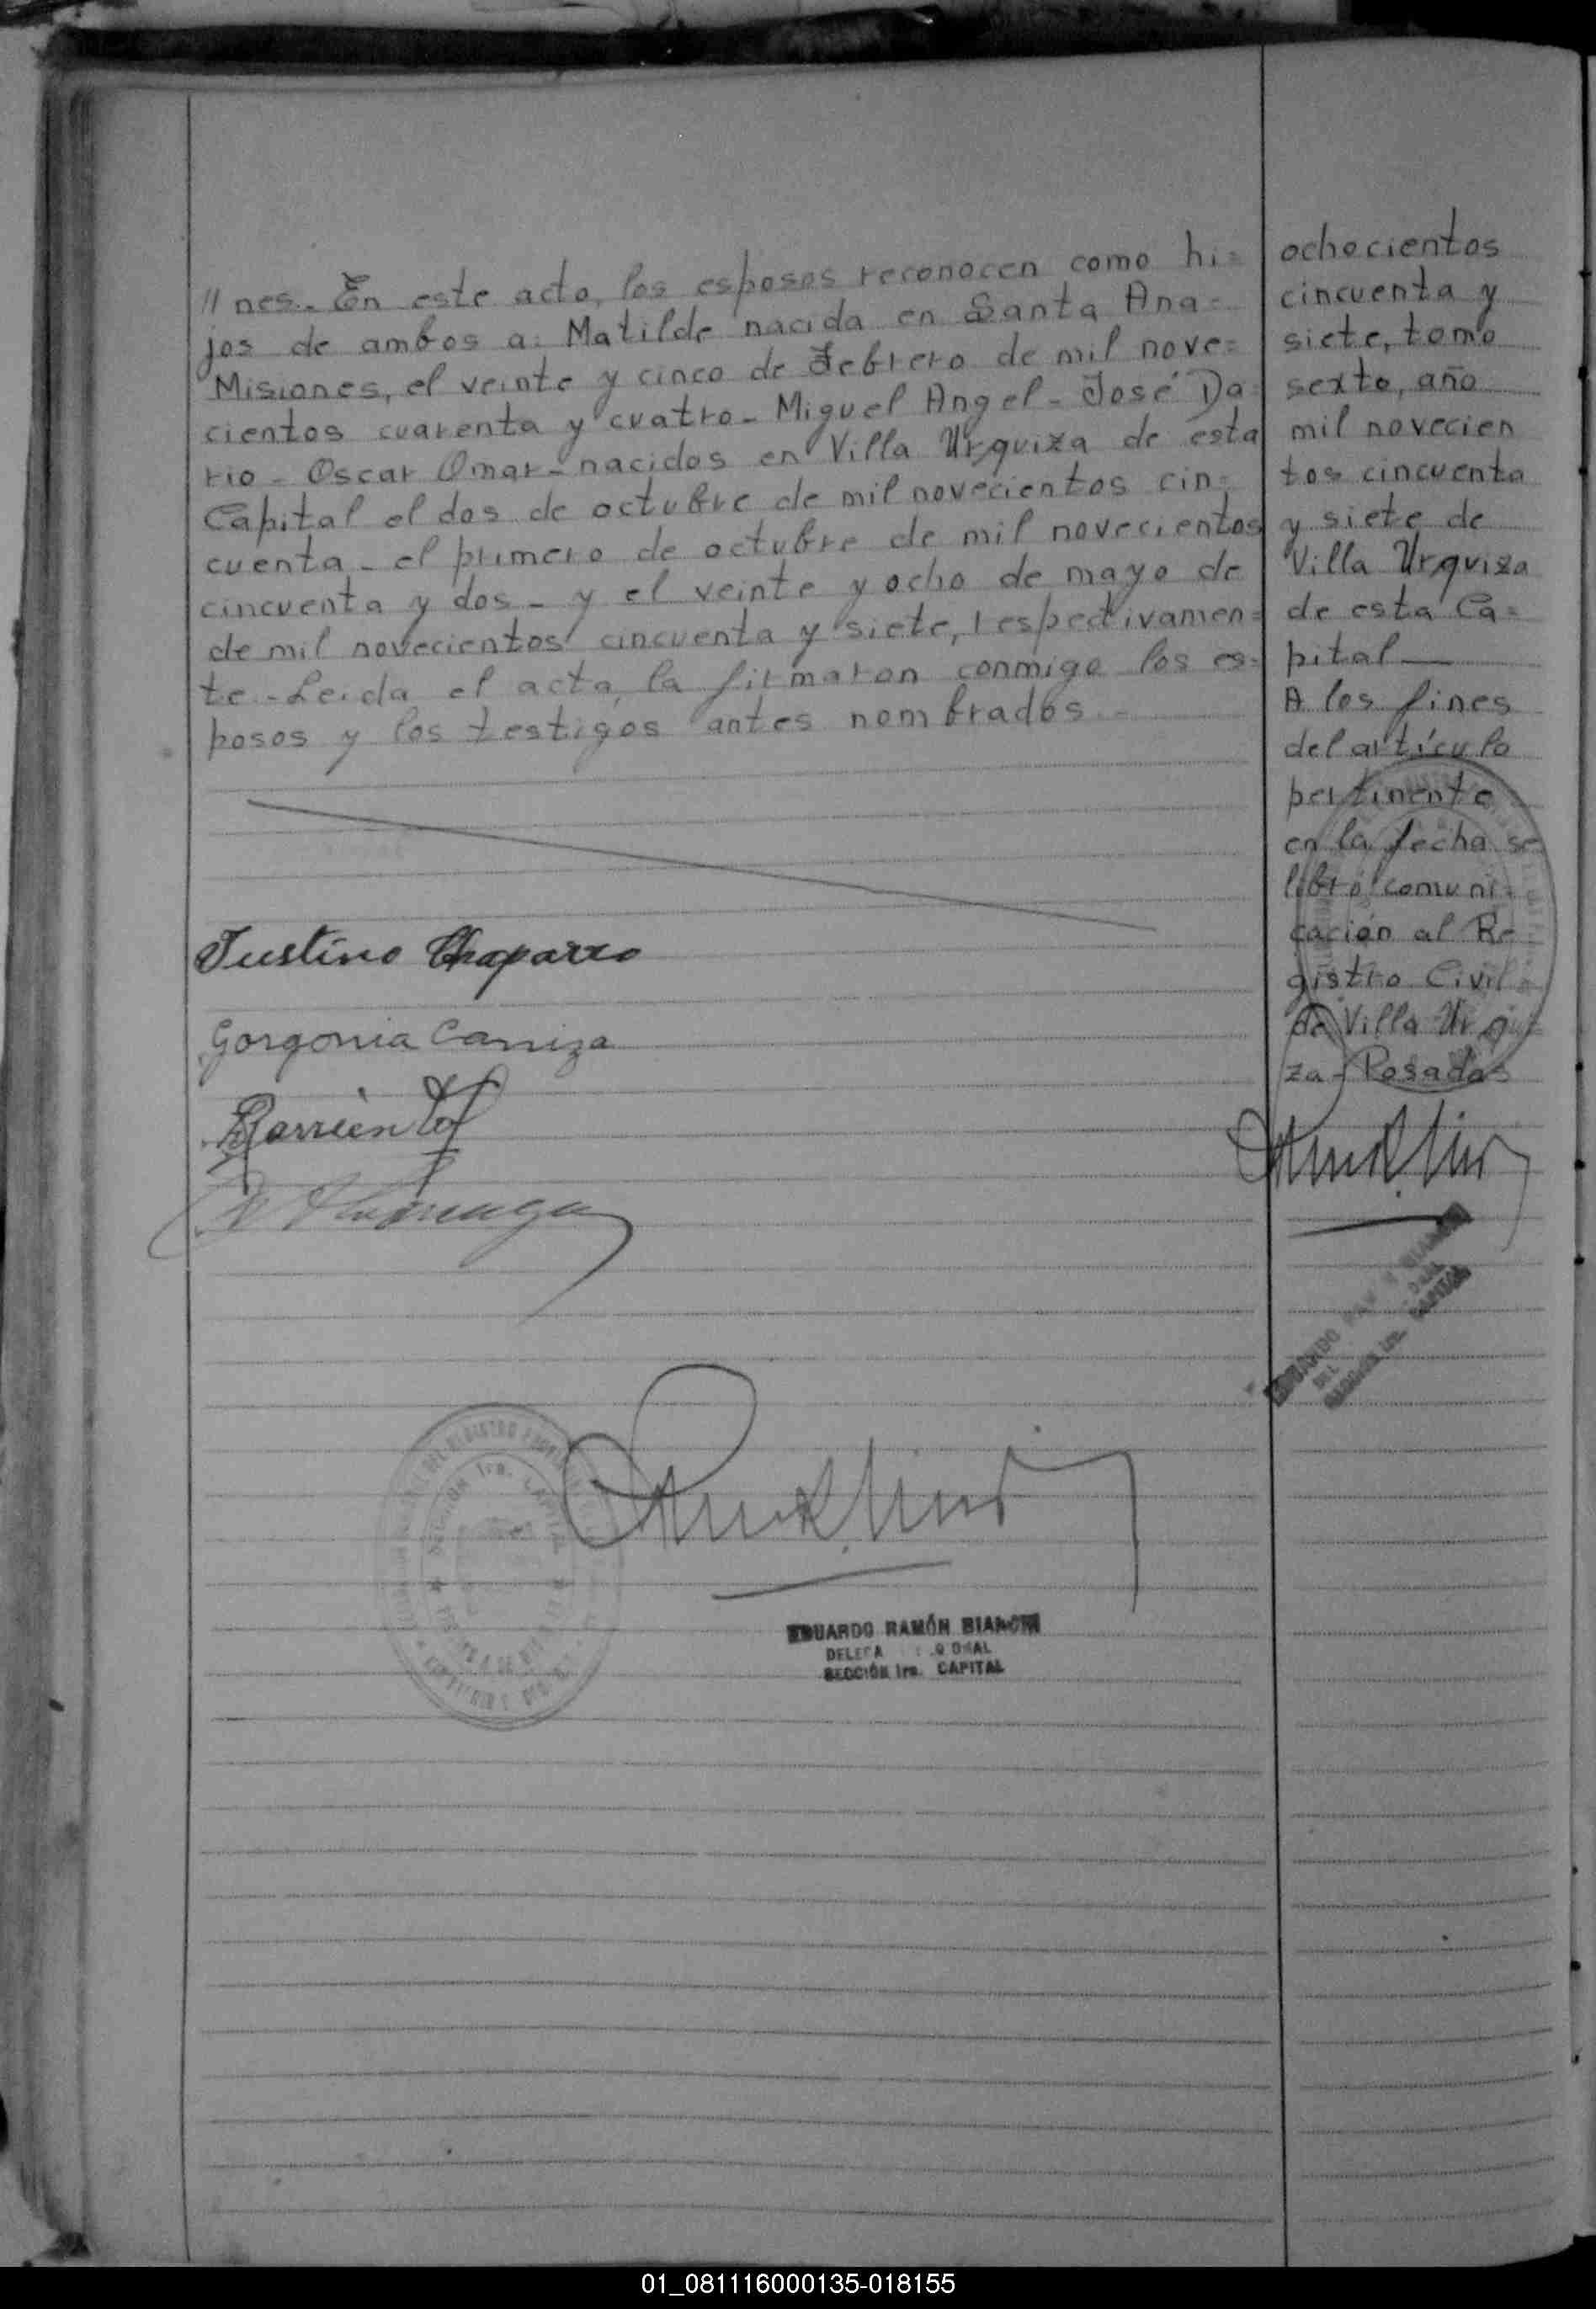 // nes. En este acto, los esposos reconocen como hi=
jos de ambos a: Matilde nacida en Santa Ana=
Misiones, el veinte y cinco de Febrero de mil nove=
cientos cuarenta y cuatro - Miguel Angel - José Da=
rio - Oscar Omar - nacidos en Villa Urquiza de esta
Capital el dos de octubre de mil novecientos cin=
cuenta - el primero de octubre de mil novecientos
cincuenta y dos - y el veinte y ocho de mayo de
de mil novecientos cincuenta y siete, respectivamen=
te - Leida el acta, la firmaron conmigo los es=
posos y los testigos antes nombrados. -
Justino Chaparro
Gorgonia Caniza
Barrientos
EDUARDO RAMÓN BIANCHI
SECCIÓN 1ra. CAPITAL
SECCION 1ra. CAPITAL
ochocientos
cincuenta y
siete, tomo
sexto, año
mil novecien
tos cincuenta
y siete de
Villa Urquiza
de esta Ca=
pital —
A los fines
del artículo
pertinente
en la fecha se
libró comuni=
cación al Re=
gistro Civil
de Villa Urqui
za - Posadas
SECCIÓN 1ra. CAPITAL
01_081116000135-018155